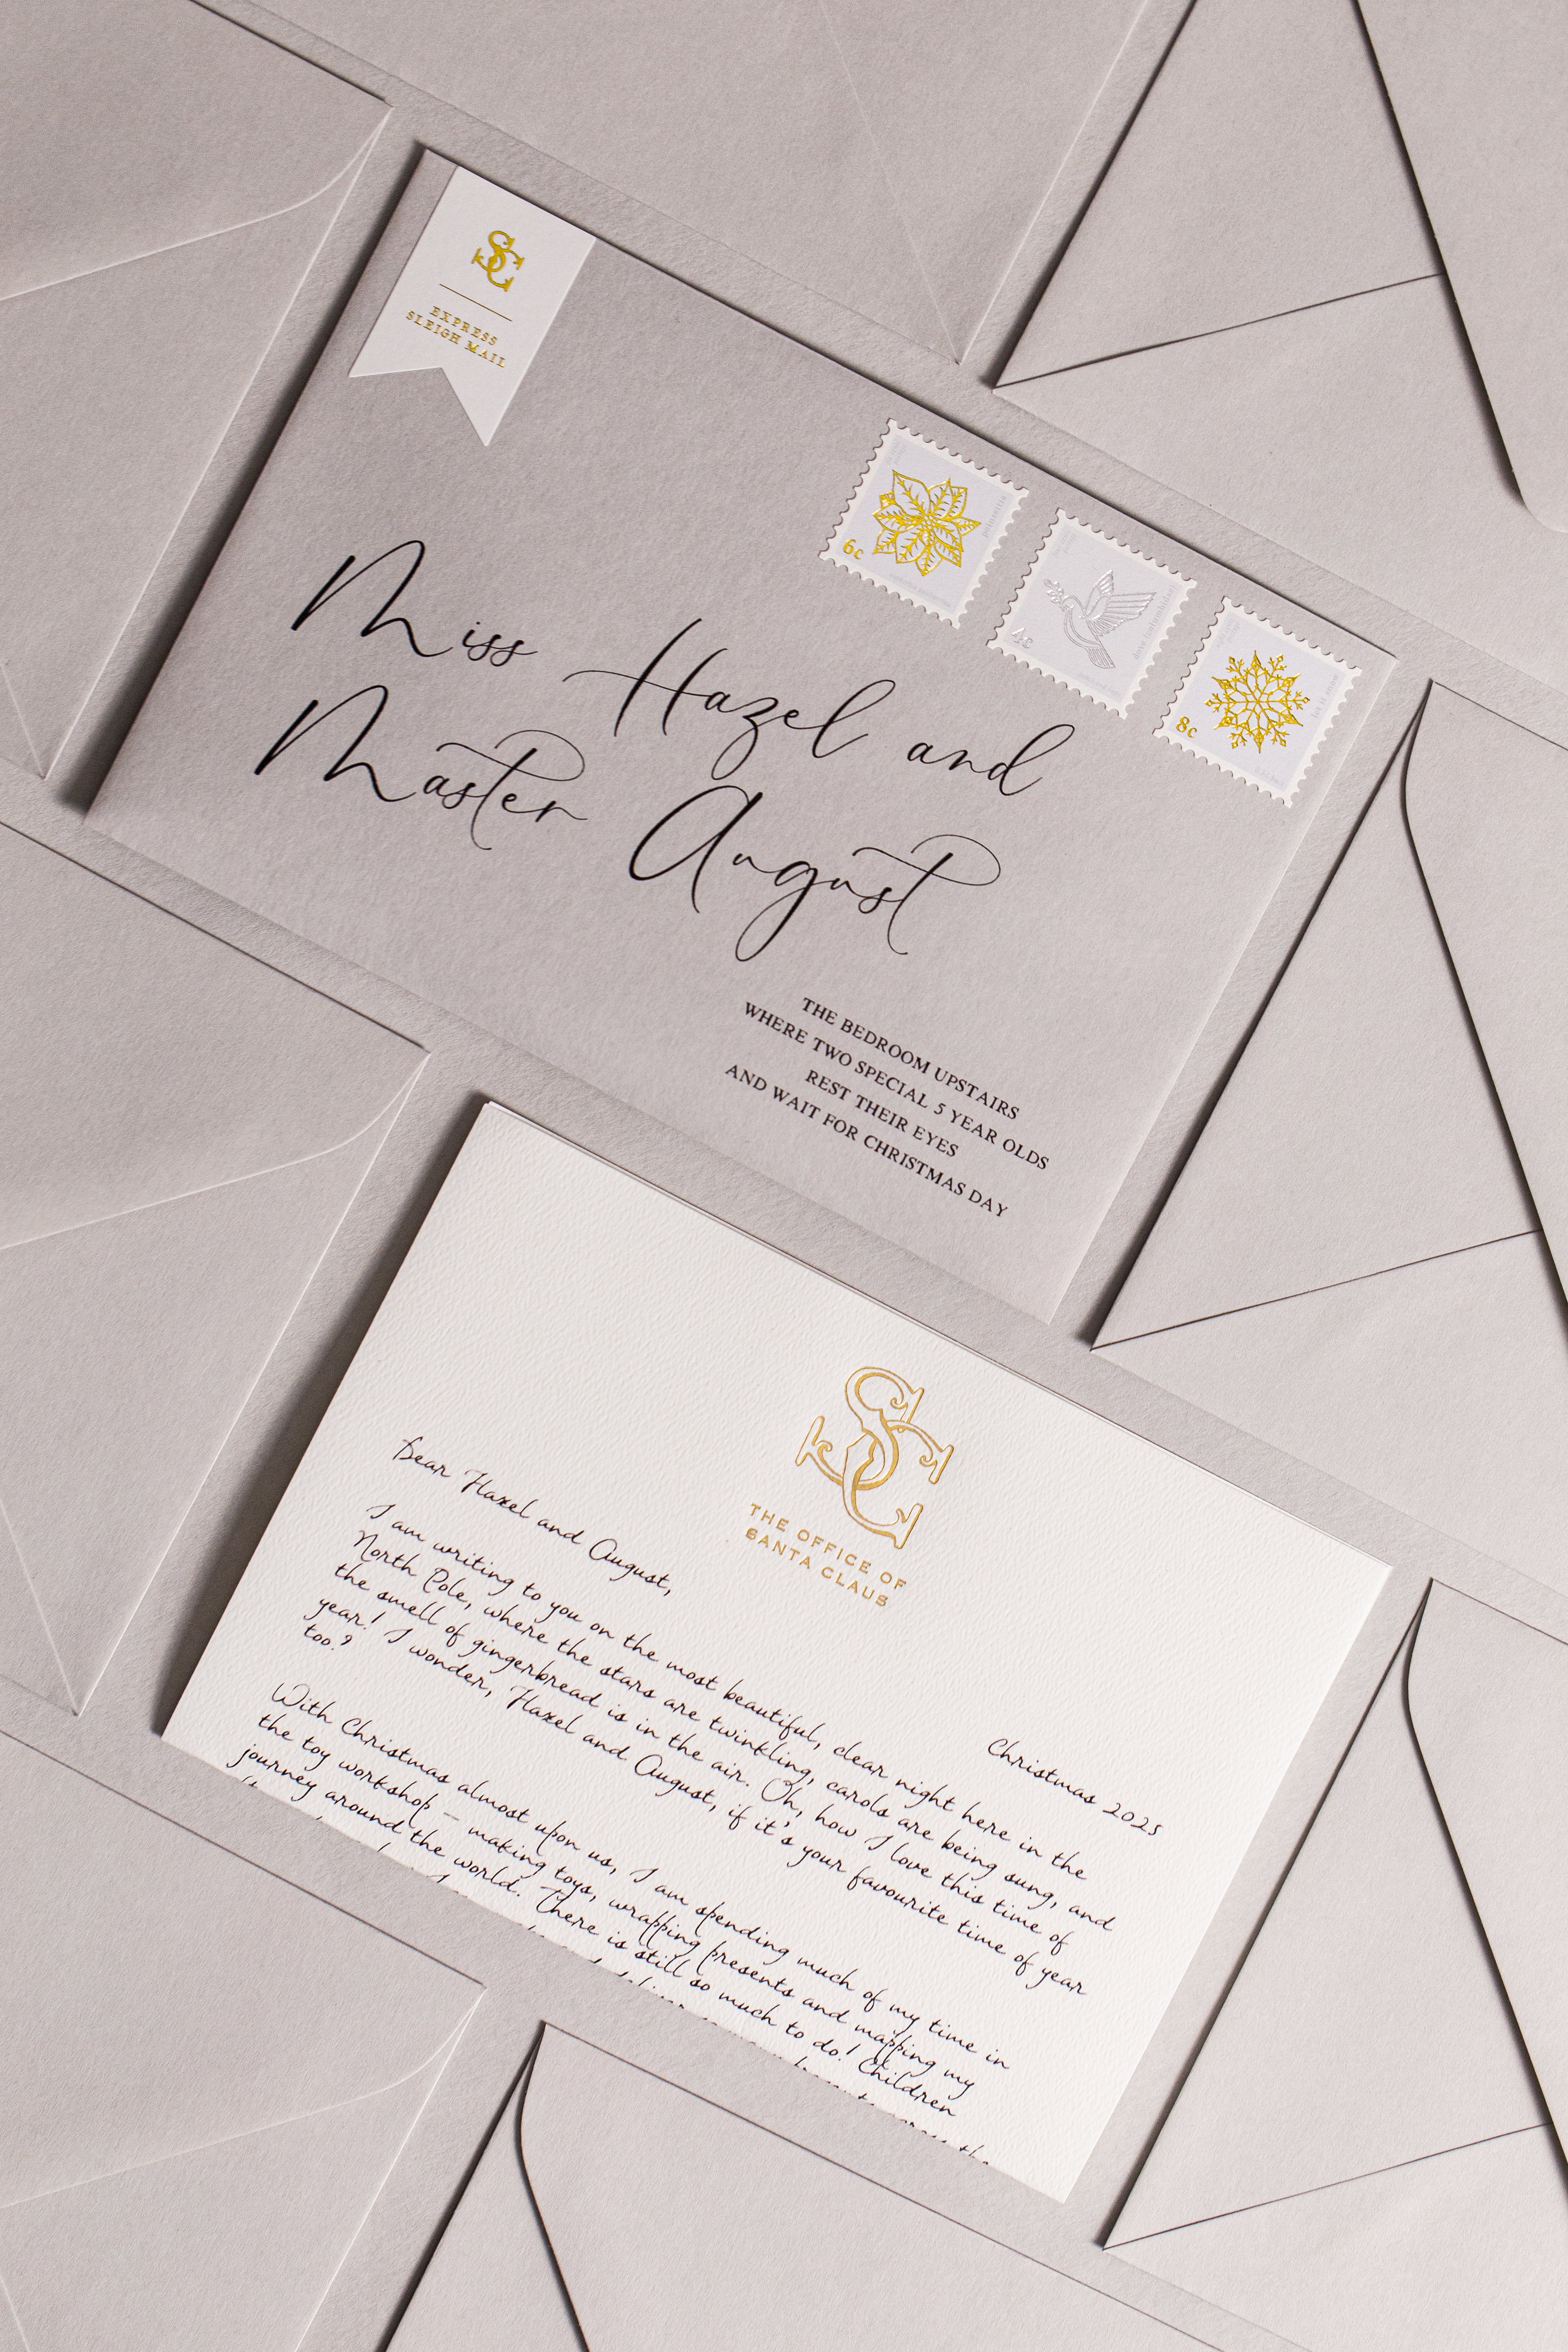 SC
EXPRESS
SLEIGH MAIL
6c
4c
8c
Miss Hazel and
Master August
THE BEDROOM UPSTAIRS
WHERE TWO SPECIAL 5 YEAR OLDS
REST THEIR EYES
AND WAIT FOR CHRISTMAS DAY
SC
THE OFFICE OF
SANTA CLAUS
Christmas 2025
Dear Hazel and August,
I am writing to you on the most beautiful, clear night here in the
North Pole, where the stars are twinkling, carols are being sung, and
the smell of gingerbread is in the air. Oh, how I love this time of
year! I wonder, Hazel and August, if it's your favourite time of year
too?
With Christmas almost upon us, I am spending much of my time in
the toy workshop – making toys, wrapping presents and mapping my
journey around the world. There is still so much to do! Children